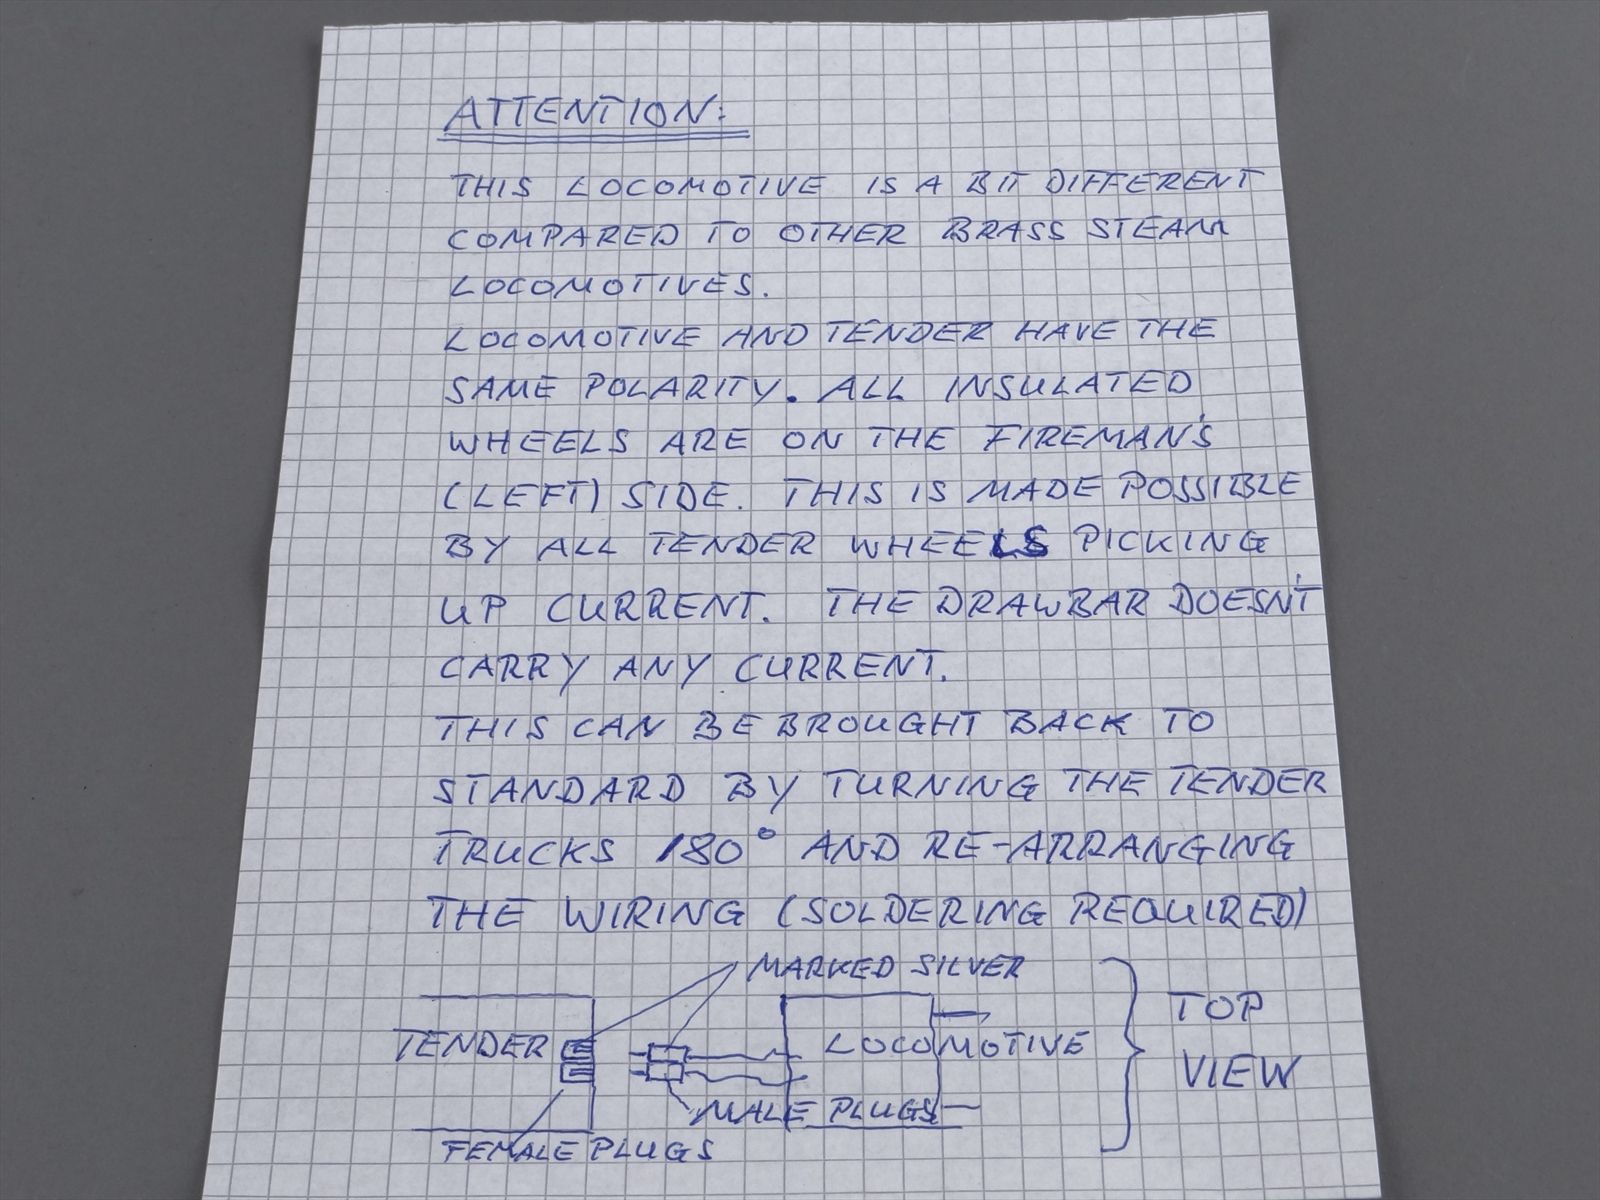 ATTENTION:
THIS LOCOMOTIVE IS A BIT DIFFERENT
COMPARED TO OTHER BRASS STEAM
LOCOMOTIVES.
LOCOMOTIVE AND TENDER HAVE THE
SAME POLARITY. ALL INSULATED
WHEELS ARE ON THE FIREMAN'S
(LEFT) SIDE. THIS IS MADE POSSIBLE
BY ALL TENDER WHEELS PICKING
UP CURRENT. THE DRAWBAR DOESN'T
CARRY ANY CURRENT.
THIS CAN BE BROUGHT BACK TO
STANDARD BY TURNING THE TENDER
TRUCKS 180° AND RE-ARRANGING
THE WIRING (SOLDERING REQUIRED)
MARKED SILVER
TENDER
LOCOMOTIVE
TOP
VIEW
MALE PLUGS
FEMALE PLUGS